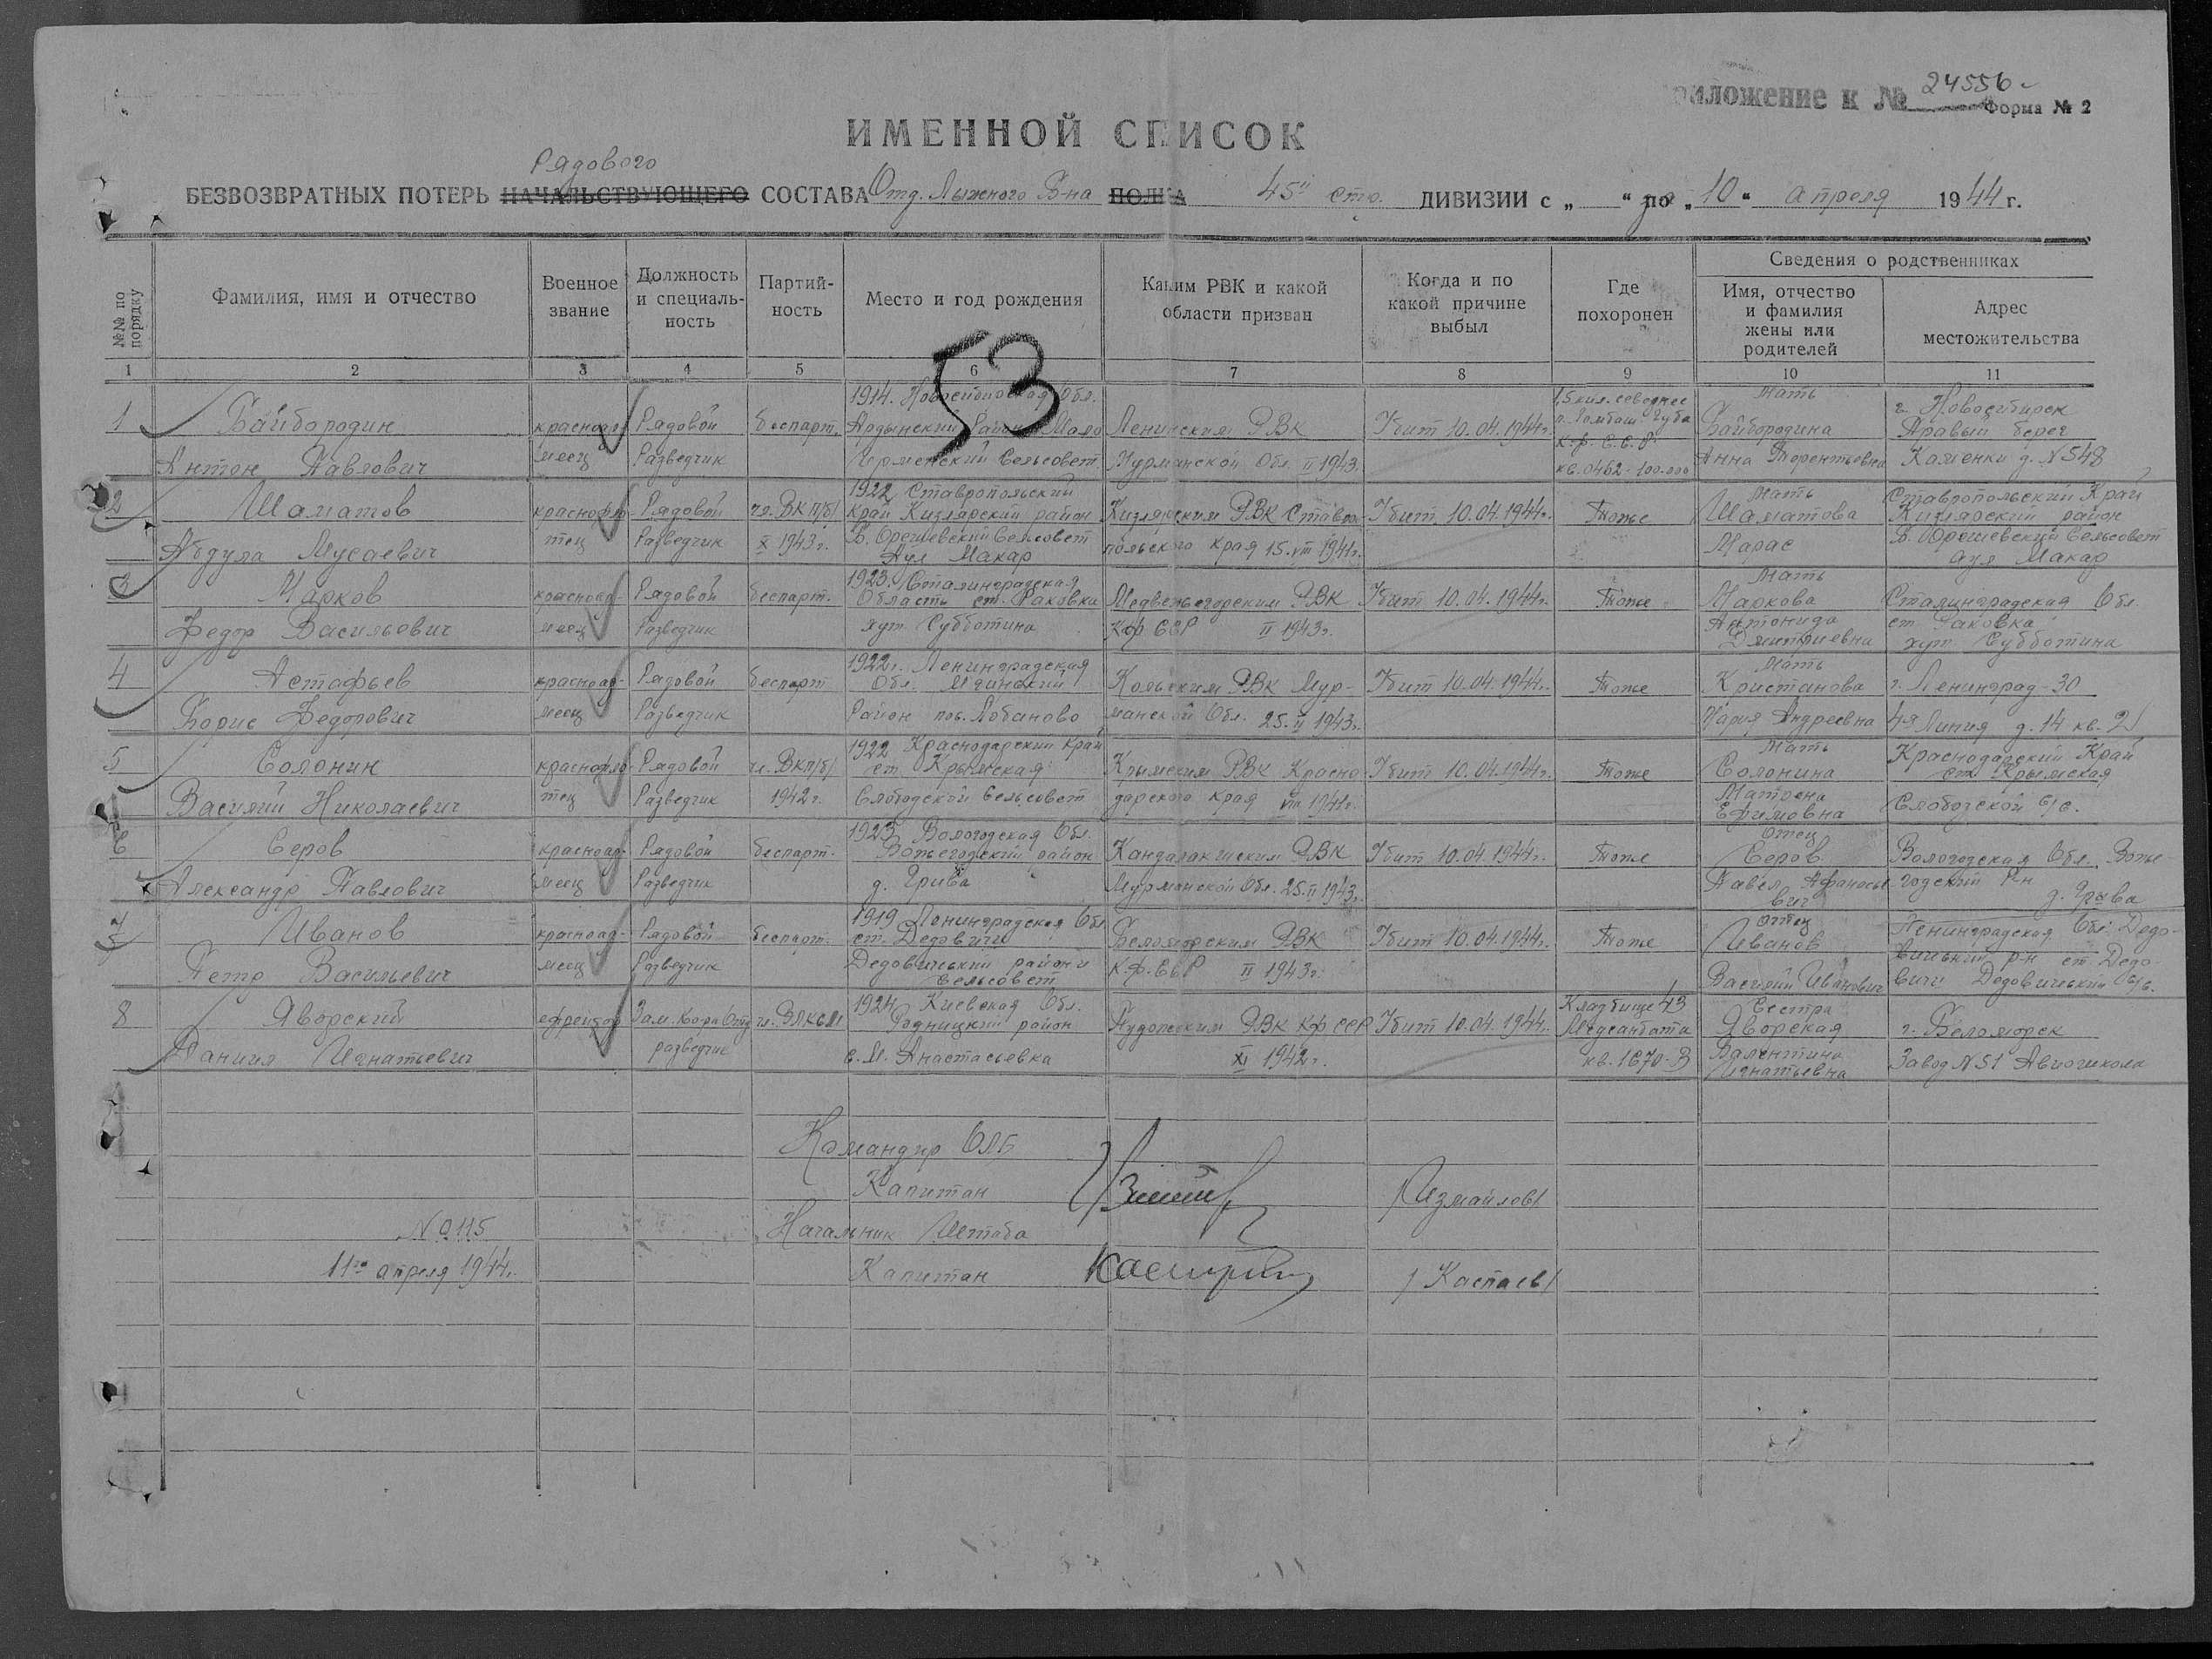 риложение к № 24556
Форма № 2
ИМЕННОЙ СПИСОК
Рядового
БЕЗВОЗВРАТНЫХ ПОТЕРЬ НАЧАЛЬСТВУЮЩЕГО СОСТАВА Отд. Лыжного Б-на ПОЛКА 45й стр. ДИВИЗИИ с „ “ по „ 10 “ апреля 1944 г.
№№ по порядку
Фамилия, имя и отчество
Военное звание
Должность и специальность
Партийность
Место и год рождения
Каким РВК и какой области призван
Когда и по какой причине выбыл
Где похоронен
Сведения о родственниках
Имя, отчество и фамилия жены или родителей
Адрес местожительства
1 2 3 4 5 6 7 8 9 10 11
53
1 Байбородин Антон Павлович
красноармеец
Рядовой Разведчик
беспарт.
1914. Новосибирская Обл. Ордынский Район Мало Сельсовет
Ленинским РВК Мурманской Обл. II 1943
Убит 10.04.1944г.
1,5 кил. севернее Губа К.ф.С.С.Р. кв. 0462-100.000
Мать Байбородина Анна Терентьевна
г. Новосибирск Правый берег Каменки д. № 548
2 Шаматов Абдула Мусаевич
краснофлотец
Рядовой Разведчик
чл. ВКП/б/ X 1943г.
1922 Ставропольский край Кизлярский район Б. Орешевский Сельсовет Аул Макар
Кизлярским РВК Ставропольского края 15.VIII 1941г.
Убит 10.04.1944г.
Тоже
Мать Шаматова Марас
Ставропольский Край Кизлярский район Б. Орешевский Сельсовет аул Макар
3 Марков Федор Васильевич
красноармеец
Рядовой Разведчик
беспарт.
1923. Сталинградская Область ст. Раковка хут. Субботина
Медвежьегорским РВК Кф ССР II 1943г.
Убит 10.04.1944г.
Тоже
Мать Маркова Антонида Дмитриевна
Сталинградская Обл. ст. Раковка хут. Субботина
4 Астафьев Борис Федорович
красноармеец
Рядовой Разведчик
беспарт
1922г. Ленинградская Обл. Мгинский Район пос. Лобаново
Кольским РВК Мурманской Обл. 25.II 1943г.
Убит 10.04.1944г.
Тоже
Мать Кристанова Мария Андреевна
г. Ленинград-30 4я Линия д. 14 кв. 21
5 Солонин Василий Николаевич
краснофлотец
Рядовой Разведчик
чл. ВКП/б/ 1942г.
1922 Краснодарский край ст. Крымская Слободской Сельсовет
Крымским РВК Краснодарского края VIII 1941г.
Убит 10.04.1944г.
Тоже
Мать Солонина Матрена Ефимовна
Краснодарский Край ст. Крымская Слободской с/с.
6 Серов Александр Павлович
красноармеец
Рядовой Разведчик
беспарт.
1925 Вологодская Обл. Вожегодский район д. Грива
Кандалакшским РВК Мурманской Обл. 25.II 1943г.
Убит 10.04.1944г.
Тоже
Отец Серов Павел Афанасьевич
Вологодская Обл. Вожегодский р-н д. Грива
7 Иванов Петр Васильевич
красноармеец
Рядовой Разведчик
беспарт.
1919 Ленинградская Обл ст. Дедовичи Дедовичский район и сельсовет
Беломорским РВК К.ф.ССР II 1943г.
Убит 10.04.1944г.
Тоже
отец Иванов Василий Иванович
Ленинградская Обл. Дедовичский р-н ст. Дедовичи Дедовичский с/с.
8 Яворский Даниил Игнатьевич
ефрейтор
Зам. Ко-ра Отд разведчик
чл. ВЛКСМ
1924 Киевская Обл. район с. М. Анастасьевка
Пудожским РВК КФ ССР XI 1942г.
Убит 10.04.1944г.
Кладбище 43 Медсанбата кв. 1670-В
Сестра Яворская Валентина Игнатьевна
г. Беломорск Завод № 51 Авиошкола
Командир ОЛБ
Капитан /Измайлов/
Начальник Штаба
Капитан /Кастаев/
№ 0115
11го апреля 1944г.